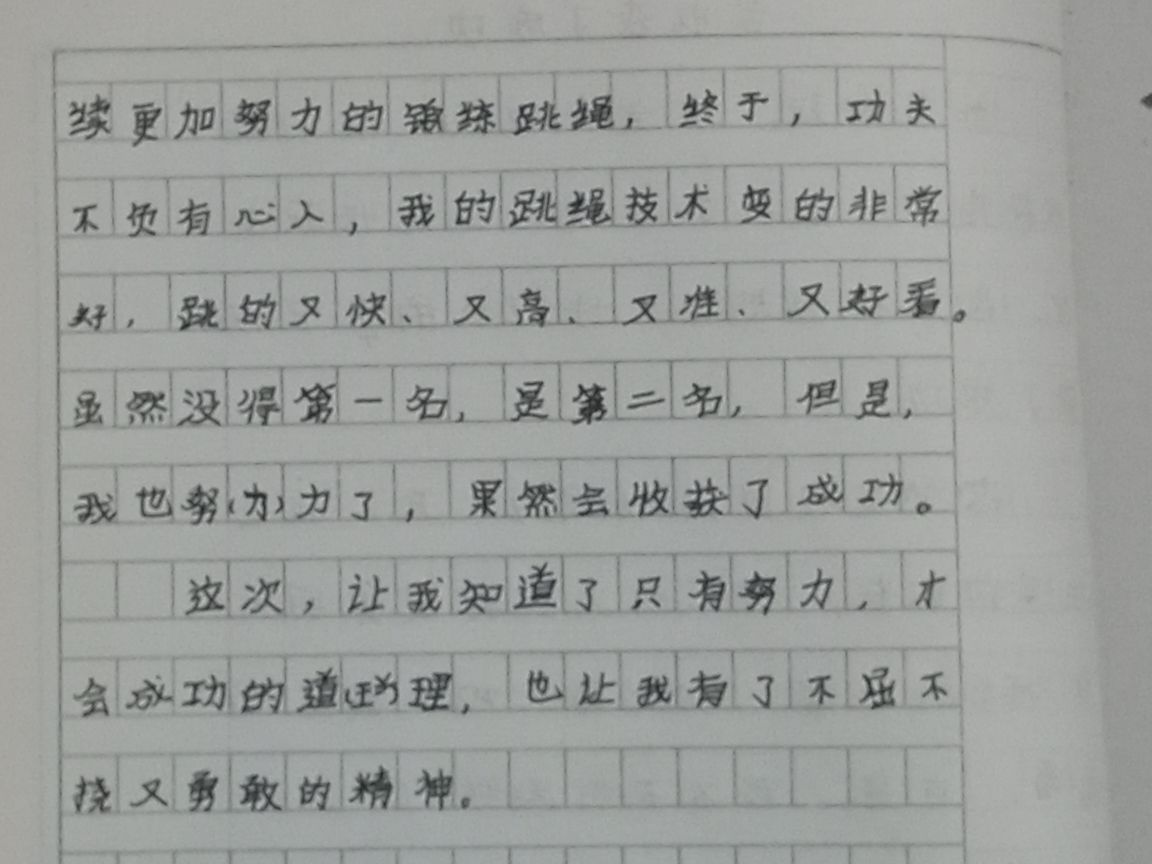 续更加努力的锻练跳绳，终于，功夫
不负有心人，我的跳绳技术变的非常
好，跳的又快、又高、又准、又好看。
虽然没得第一名，是第二名，但是，
我也努(力)力了，果然会收获了成功。
这次，让我知道了只有努力，才
会成功的道理，也让我有了不屈不
挠又勇敢的精神。